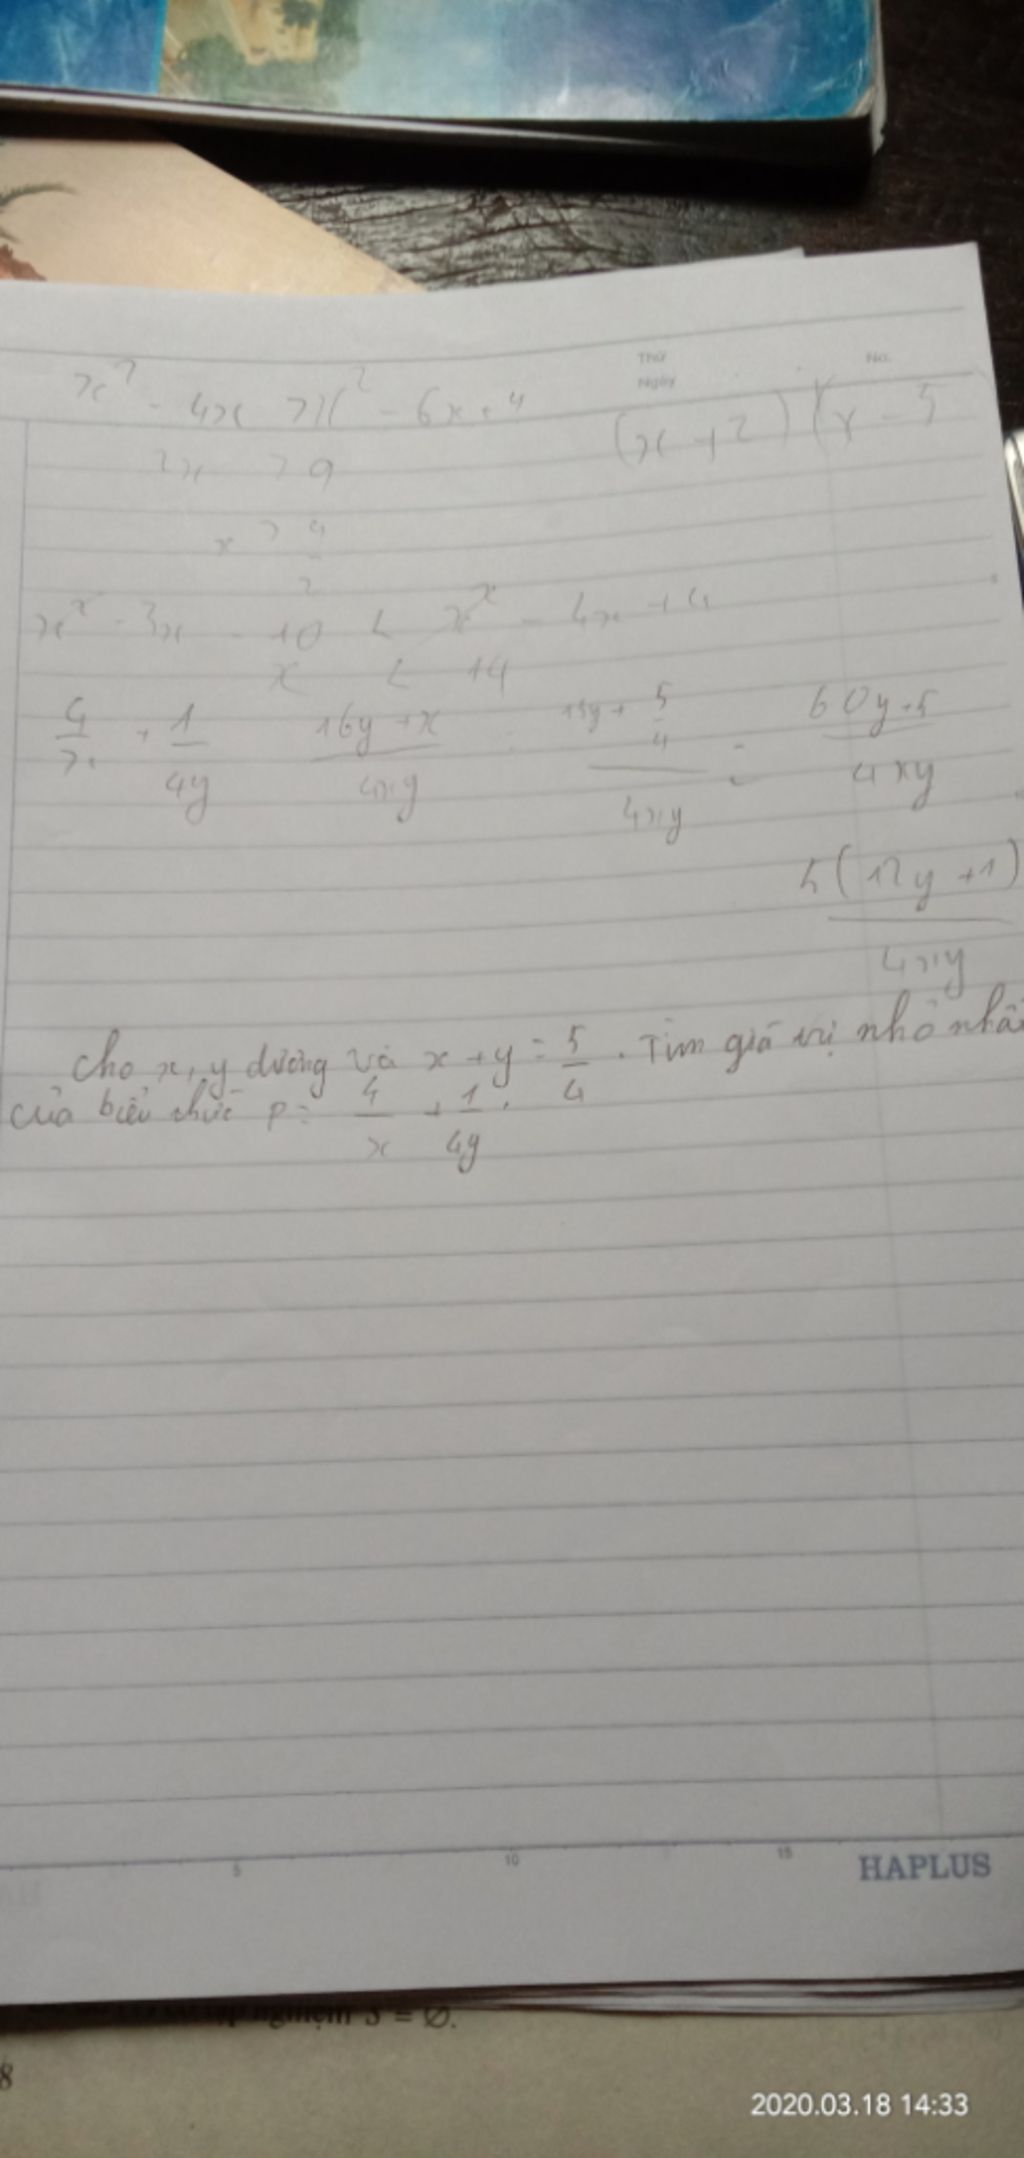 Thứ
Ngày
No.
x² - 4x > x² - 6x + 9
(x + 2)(x - 5
2x > 9
x > 9/2
x² - 3x - 10 < x² - 4x + 4
x < 14
4/x + 1/4y 16y + x/4xy 15y + 5/4/4xy = 60y + 5/4xy
5(12y + 1)/4xy
Cho x, y dương và x + y = 5/4. Tìm giá trị nhỏ nhấ
của biểu thức P = 4/x + 1/4y.
5 10 15
HAPLUS
nghiệm S = Ø.
8
2020.03.18 14:33